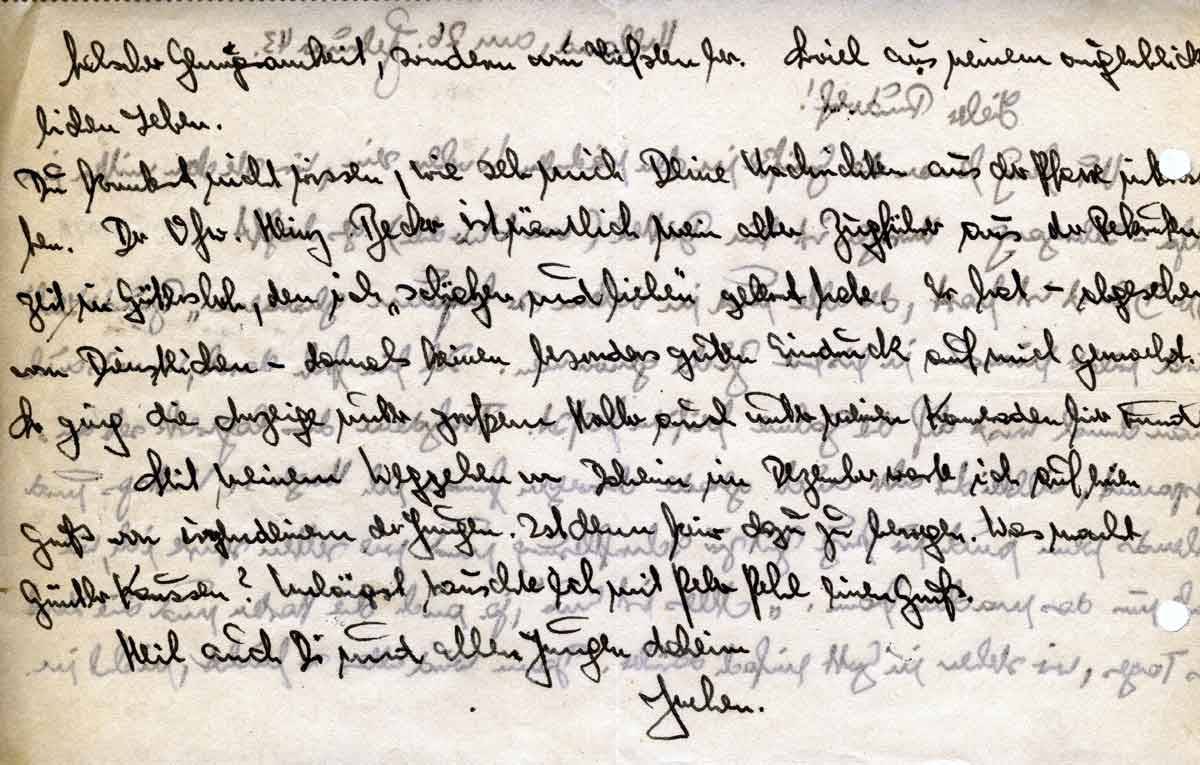 falscher Genügsamkeit, sondern vom tiefsten her. Soviel aus meinem augenblick
lichen Leben.
Du kannst nicht wissen, wie sehr mich Deine Nachrichten aus der Pfarre
ten. Der Heinz Becker ist nämlich mein alter Zugführer aus der Rekruten
zeit in Gütersloh, den ich „schätzen und lieben" gelernt habe. Er hat – abgesehen
vom Dienstlichen – damals keinen besonders guten Eindruck auf mich gemacht.
So ging die Anzeige unter großem Hallo auch unter meinen Kameraden hier rund
Seit meinem Weggehen von Daheim im Dezember warte ich auf einen
Gruß von irgendeinem der Jungen. Ist denn keiner dazu zu bewegen. Was macht
Günther Kaussen? Unlängst tauschte ich mit Peter Pehl einen Gruß.
Heil auch Dir und allen Jungen daheim
Jochen.